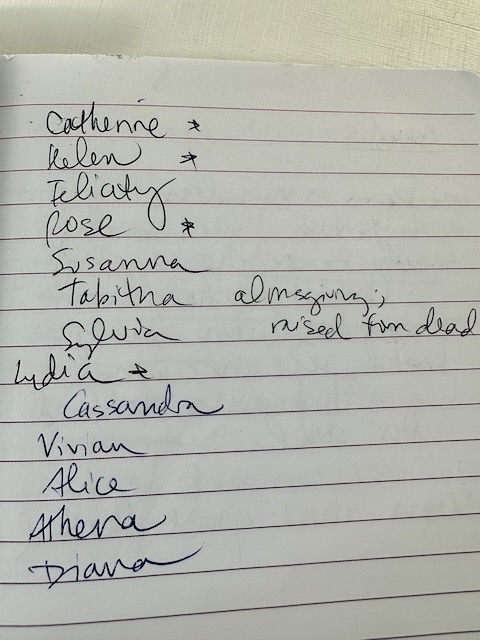 Catherine *
Helen *
Feliaty
Rose *
Susanna
Tabitha almsgiving;
Sylvia raised from dead
Lydia *
Cassandra
Vivian
Alice
Athena
Diana